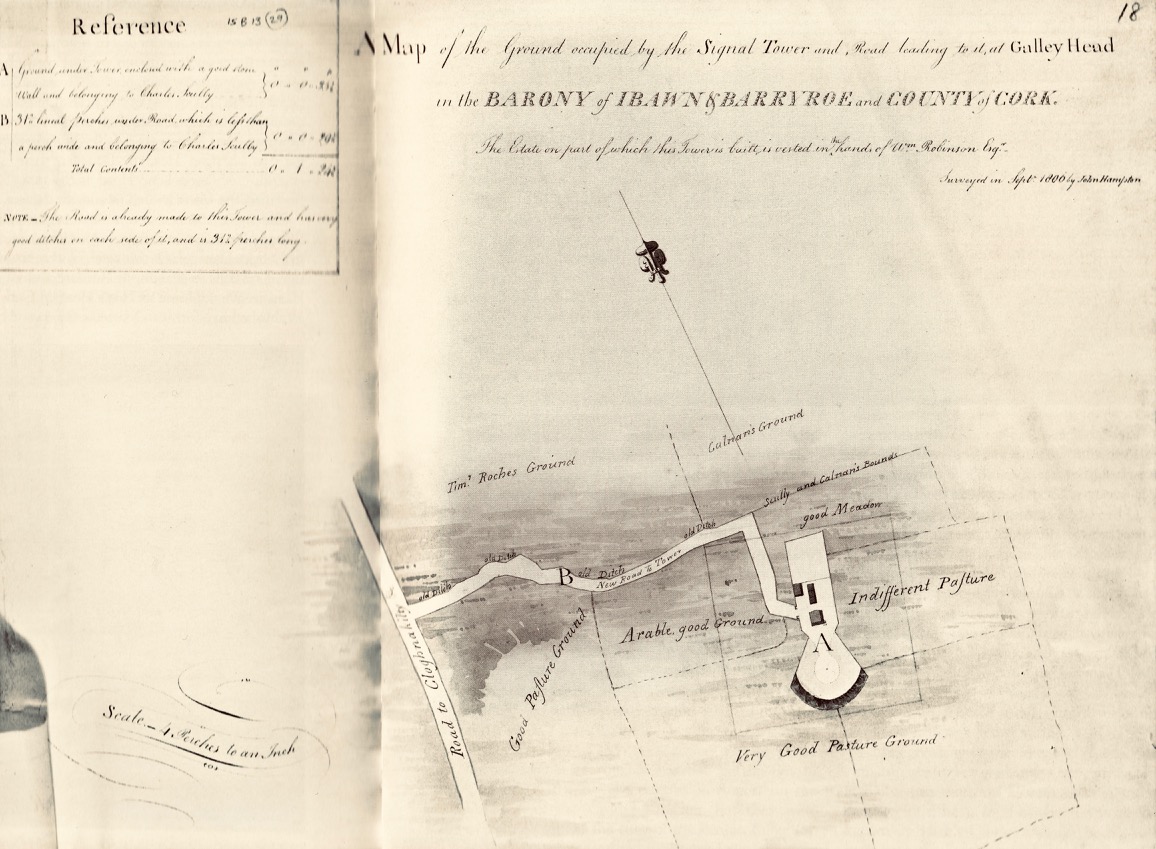 18
Reference
15 B 13 (29)
A Ground under Tower, enclosed with a good stone
Wall and belonging to Charles Scully
B 31½ lineal perches under Road, which is less than
a perch wide and belonging to Charles Scully
Total Contents
NOTE - The Road is already made to this Tower and having
good ditches on each side of it, and is 31½ perches long.
A Map of the Ground occupied by the Signal Tower and Road leading to it, at Galley Head
in the BARONY of IBAWN & BARRYROE and COUNTY of CORK.
The Estate on part of which this Tower is built, is vested in the hands of Wm Robinson Esqr.
Surveyed in Sept. 1806 by John Hampton
Culnan's Ground
Timy Roches Ground
Scully and Calnan's Bounds
good Meadow
old Ditch
old Ditch
B
old Ditch
New Road to Tower
old Ditch
Indifferent Pasture
Arable good Ground
A
Good Pasture Ground
Road to Cloghnakilty
Very Good Pasture Ground
Scale - 4 Perches to an Inch